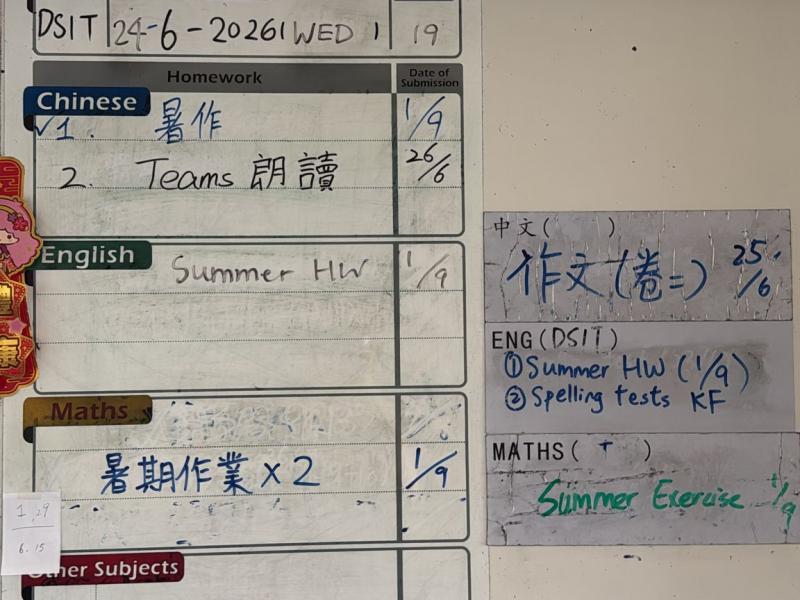 DSIT 24-6-2026 WED 19
Homework Date of Submission
Chinese
✓1. 暑作 1/9
2. Teams 朗讀 26/6
English
Summer HW 1/9
Maths
暑期作業 x 2 1/9
Other Subjects
1.29
6.15
中文( )
作文(卷二) 25/6
ENG(DSIT)
① Summer HW (1/9)
② Spelling tests KF
MATHS( T )
Summer Exercise 1/9